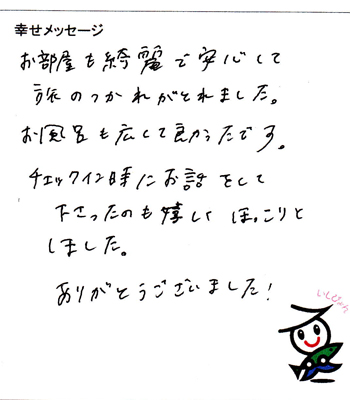 幸せメッセージ
お部屋も綺麗で安心して
旅のつかれがとれました。
お風呂も広くて良かったです。
チェックイン時にお話をして
下さったのも嬉しくほっこりと
しました。
ありがとうございました!
いしぴょん